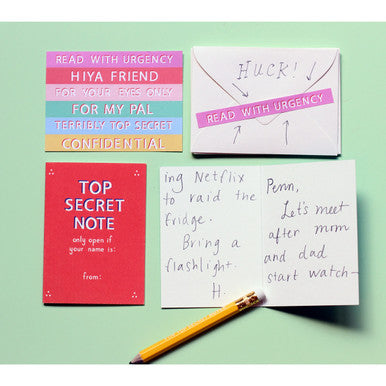 READ WITH URGENCY
HIYA FRIEND
FOR YOUR EYES ONLY
FOR MY PAL
TERRIBLY TOP SECRET
CONFIDENTIAL
HUCK!
READ WITH URGENCY
TOP
SECRET
NOTE
only open if
your name is:
from:
ing Netflix
to raid the
fridge.
Bring a
flashlight.
H.
Penn,
Let's meet
after mom
and dad
start watch-